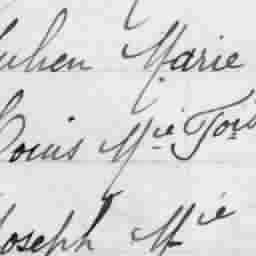 Julien Marie
Louis Mie Tous
Joseph Mie